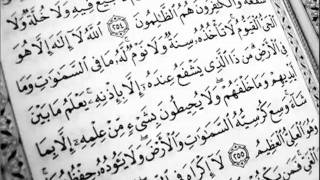 بَيْعٌ فِيهِ وَلَا خُلَّةٌ وَلَا
شَفَٰعَةٌ وَٱلْكَٰفِرُونَ هُمُ ٱلظَّٰلِمُونَ ٢٥٤ ٱللَّهُ لَآ إِلَٰهَ إِلَّا هُوَ
ٱلْحَىُّ ٱلْقَيُّومُ لَا تَأْخُذُهُۥ سِنَةٌ وَلَا نَوْمٌ لَّهُۥ مَا فِى ٱلسَّمَٰوَٰتِ وَمَا
فِى ٱلْأَرْضِ مَن ذَا ٱلَّذِى يَشْفَعُ عِندَهُۥٓ إِلَّا بِإِذْنِهِۦ يَعْلَمُ مَا بَيْنَ
أَيْدِيهِمْ وَمَا خَلْفَهُمْ وَلَا يُحِيطُونَ بِشَىْءٍ مِّنْ عِلْمِهِۦٓ إِلَّا بِمَا
شَآءَ وَسِعَ كُرْسِيُّهُ ٱلسَّمَٰوَٰتِ وَٱلْأَرْضَ وَلَا يَـُٔودُهُۥ حِفْظُهُمَا
وَهُوَ ٱلْعَلِىُّ ٱلْعَظِيمُ ٢٥٥ لَآ إِكْرَاهَ فِى